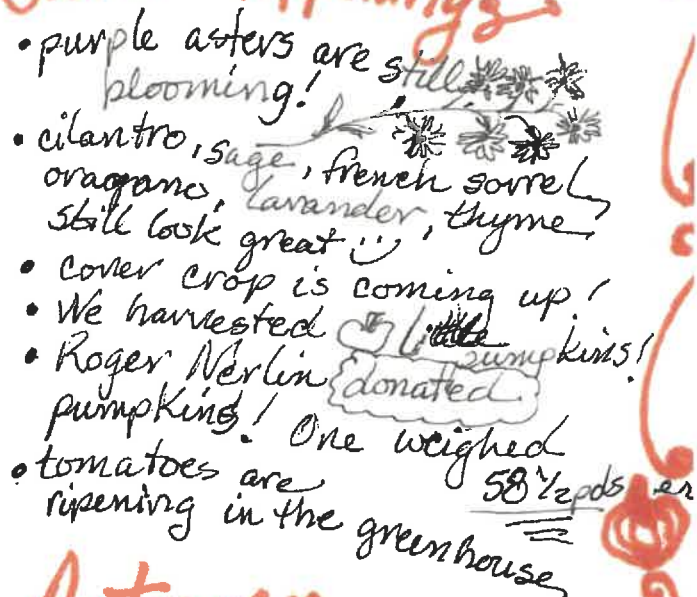 • purple asters are still
blooming!
• cilantro, sage, french sorrel,
oragano, lavander, thyme
still look great
• cover crop is coming up!
• We harvested little pumpkins!
• Roger Nerlin donated
pumpkins! One weighed
58 ½ pds
• tomatoes are
ripening in the greenhouse